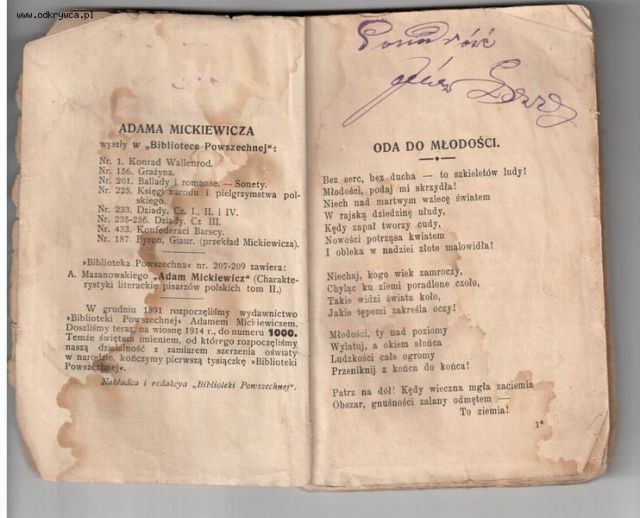 www.odkrywca.pl
ADAMA MICKIEWICZA
wyszły w „Bibliotece Powszechnej“:
Nr. 1. Konrad Wallenrod.
Nr. 156. Grażyna.
Nr. 201. Ballady i romanse. — Sonety.
Nr. 225. Księgi narodu i pielgrzymstwa pol-
skiego.
Nr. 233. Dziady, Cz I., II. i IV.
Nr. 235-236. Dziady. Cz III.
Nr. 433. Konfederaci Barscy.
Nr. 187. Byron, Giaur. (przekład Mickiewicza).
»Biblioteka Powszechna« nr. 207-209 zawiera:
A. Mazanowskiego „Adam Mickiewicz“ (Charakte-
rystyki literackie pisarzów polskich tom II.)
W grudniu 1891 rozpoczęliśmy wydawnictwo
»Biblioteki Powszechnej« Adamem Mickiewiczem.
Doszliśmy teraz, na wiosnę 1914 r., do numeru 1000.
Temże świętem imieniem, od którego rozpoczęliśmy
naszą działalność z zamiarem szerzenia oświaty
w narodzie, kończymy pierwszą tysiączkę »Biblioteki
Powszechnej«.
Nakładca i redakcya „Biblioteki Powszechnej“.
ODA DO MŁODOŚCI.
Bez serc, bez ducha — to szkieletów ludy!
Młodości, podaj mi skrzydła!
Niech nad martwym wzlecę światem
W rajską dziedzinę ułudy,
Kędy zapał tworzy cudy,
Nowości potrząsa kwiatem
I obleka w nadziei złote malowidła!
Niechaj, kogo wiek zamroczy,
Chyląc ku ziemi poradlone czoło,
Takie widzi świata koło,
Jakie tępemi zakreśla oczy!
Młodości, ty nad poziomy
Wylatuj, a okiem słońca
Ludzkości całe ogromy
Przeniknij z końca do końca!
Patrz na dół! Kędy wieczna mgła zaciemia
Obszar, gnuśności zalany odmętem —
To ziemia!
1*